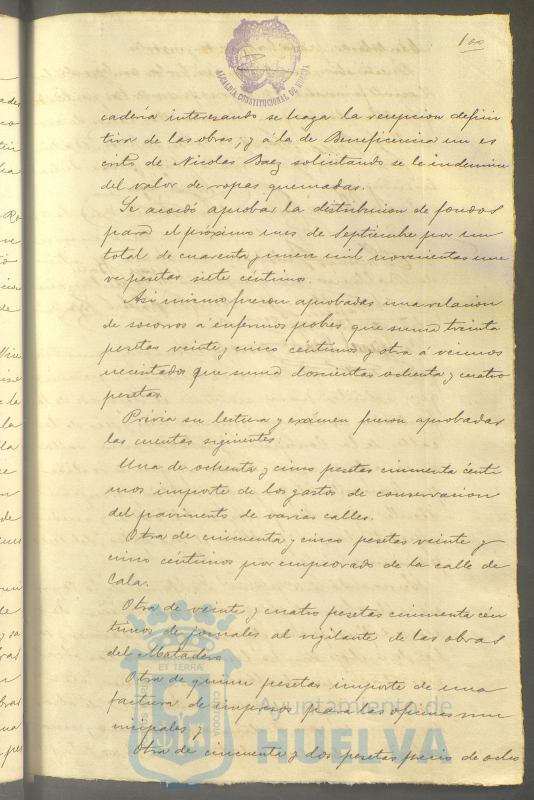 100
ALCALDÍA CONSTITUCIONAL DE HUELVA
cadería interesando se haga la recepcion defini
tiva de las obras; y á la de Beneficencia un es
crito de Nicolas Baez solicitando se le indemnice
del valor de ropas quemadas.
Se acordó aprobar la distribucion de fondos
para el próximo mes de Septiembre por un
total de cuarenta y nueve mil novecientas nue
ve pesetas siete céntimos.
Asi mismo fueron aprobadas una relacion
de socorros á enfermos pobres que suma treinta
pesetas veinte y cinco céntimos y otra á vecinos
necesitados que suma doscientas ochenta y cuatro
pesetas.
Prévia su lectura y exámen fueron aprobadas
las cuentas siguientes:
Una de ochenta y cinco pesetas cincuenta cénti
mos importe de los gastos de conservacion
del pavimento de varias calles.
Otra de cincuenta y cinco pesetas veinte y
cinco céntimos por empedrado de la calle de
Cala.
Otra de veinte y cuatro pesetas cincuenta cén
timos de jornales al vigilante de las obras
del Matadero
Otra de quince pesetas importe de una
factura de impresos para las oficinas mu
nicipales y
Otra de cincuenta y dos pesetas precio de ocho
ET TERRÆ
CUSTODIA
Ayuntamiento de
HUELVA